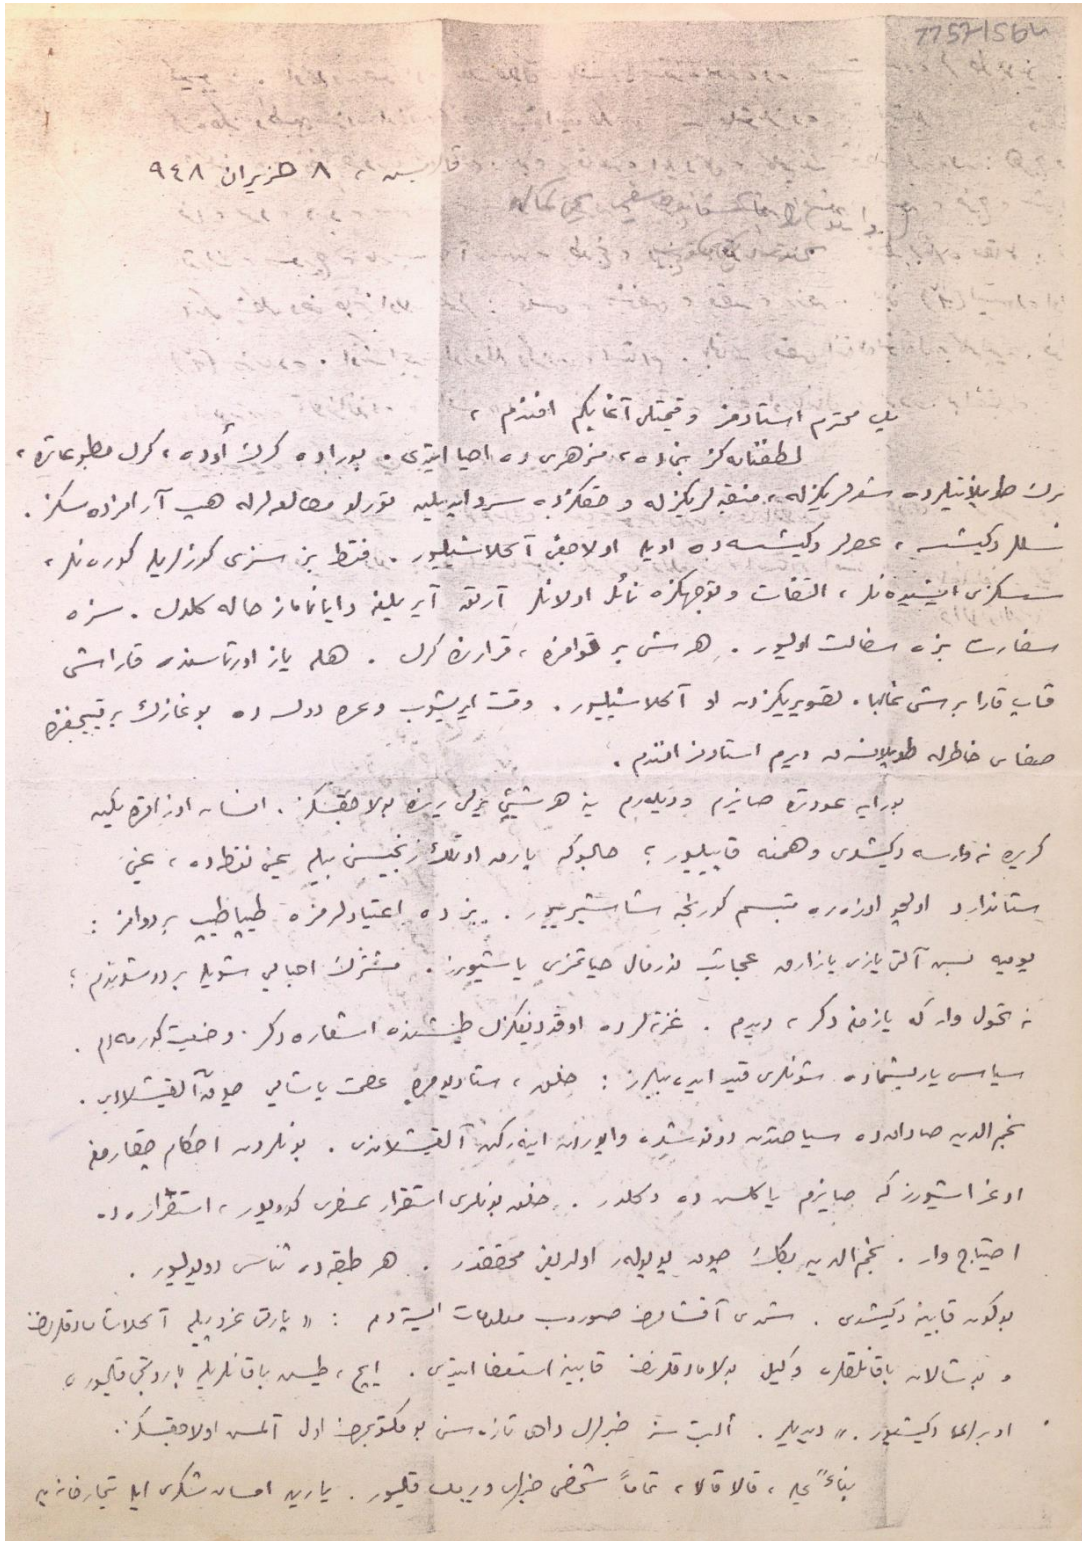 ٨ حزيران ٩٤٨
پك محترم استادمز و قيمتلى آغابكم افندم ،
لطفنامه كز بنى ده، مزهرى ده احيا ايتدى . بوراده كرك أوده ، كرك مطبوعاتده ،
كرك طوپلانتيلرده شعرلريكزله، منقبه لريكزله و حقكزده سرد ايديلن تورلو مطالعه لرله هپ آرامزده سكز .
نسللر دكيشسه ، عصرلر دكيشسه ده اويله اولاجغى آكلاشيليور . فقط بز سزى كوزلريله كورەنلر ،
سسكزى ايشيدەنلر ، التفات و توجهكزه نائل اولانلر آرتق آيريلغه دايانماماز حاله كلدك . سزه
سفارت بزه سفالت اوليور . هر شى بر قوامده ، قرارنده كرك . هله ياز اورتاسنده قارا قيش
قاپ قارا بر شى غالبا . تصويريكزدن او آكلاشيليور . وقت ايريشوب وعده دولسه ده بوغازك بر
صفاسى خاطرله طوپلانسه ق ديرم استادمز افندم .
بورايه عودتده صانيرم و ديلەرم ينه هر شيئى يرلى يرنده بولاجقسكز . انسان اوزاقده ايكن
كريده نه وارسه دكيشدى وهمنه قاپيليور ؛ حالبوكه يارى اوتلك زنجيسنى بيله عينى نقطه ده ، عينى
ستاندارد اولچو اوزەره متبسم كورنجه شاشيريور . بز ده اعتيادلرمزه طيپاطيپ بر دوامز :
يوميه بش آلتى يازى يازارق عجائب نورمال حياتمزى ياشيورز . مشترك احبابى شويله بر دوشوندم ؛
نه تحول وار كه يازمغه دكر ، ديدم . غزته لرده اوقوديغكزك طيشنده اشعاره دكر وضعيت كورمه دم .
سياسى ياريشماده شونلرى قيد ايده بيليرز : خلق ، ستاديومده عصمت پاشايى چوق آلقيشلادى .
نجم الدين صاداق ده سياحتدن دونوشده واپوردن اينەركن آلقيشلاندى . بونلردن احكام چيقارمغه
اوغراشيورز كه صانيرم ياكلش ده دكلدر . خلق بونلرى استقرار عنصرى كورويور ، استقراره ده
احتياج وار . نجم الدين بكك چوق پوپولەر اولديغى محققدر . هر طبقه ده ثناسى دويوليور .
بوكون قابينه دكيشدى . شمدى آقشامدن صوروب معلومات ايستەدم : «پارتى غروپيله آكلاشامادقلرندن
و بوشالان باقانلقلره وكيل بولامادقلرندن قابينه استعفا ايتدى . ايچ ، طيش باقانلريله باروتجى قاليور ،
اوبرلرى دكيشيور .» ديديلر . ألبت سز خبرلرك داها تازه سنى بو مكتوبمدن اول آلمش اولاجقسكز .
بناءً عليه ، قالا قالا ، تماماً شخصى خبرلرى ويرمك قاليور . يارين احسان شكرى ايله تجارخانه يه